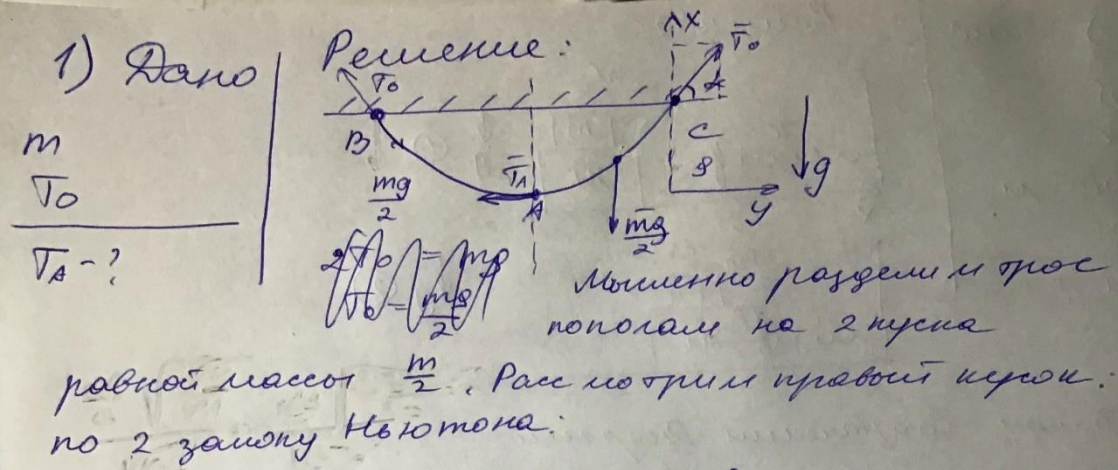 1) Дано
Решение:
m
T₀
T_A - ?
T₀
B
mg/2
T̄_A
A
mg/2
X
T̄₀
α
C
y
g
2T₀ = mg
T₀ = mg/2
Мысленно разделим трос
пополам на 2 куска
равной массы m/2. Рассмотрим правый кусок.
по 2 закону Ньютона: